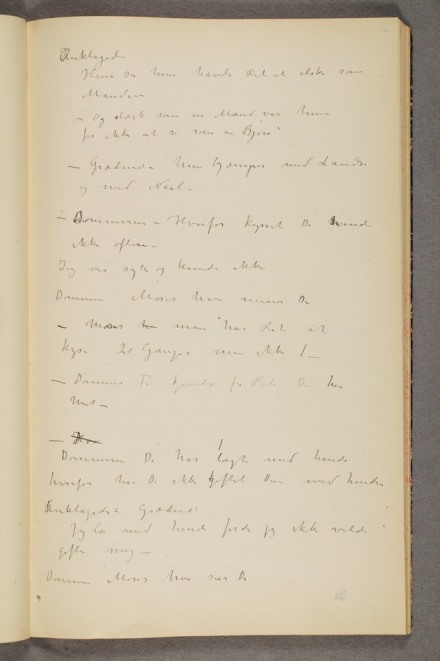 Anklagede
Hun sa hun havde Ret at elske som
Manden
– Og stærk som en Mand var hun
for ikke at si som en Bjørn"
– Grædende hun kjæmper med Tænder
og med Negl –
– Dommeren – Hvorfor kysset De hende
ikke oftere –
Jeg var syk og kunde ikke
Dommer Moses hva mener De
– Moses man har Ret at
kysse 20 Gange men ikke 1 –
– Dommer De kjendes for Ret De har
–
–
Dommeren De har lagt med hende
hvorfor har De ikke giftet Dem med hende
Anklagede Grædende
Jeg lå med hende fordi jeg ikke vilde
gifte mig –
Dommer Moses hva sier De